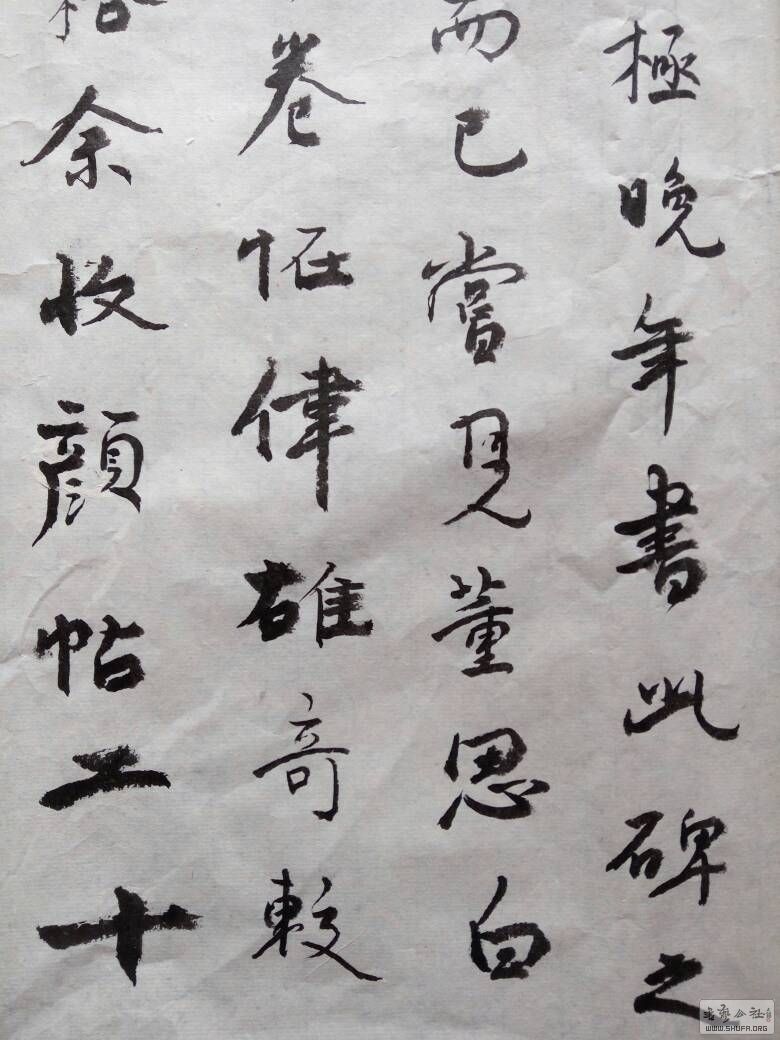 極晚年書此碑之
而已嘗見董思白
卷恠偉雄奇較
余收顏帖二十
WWW.SHUFA.ORG